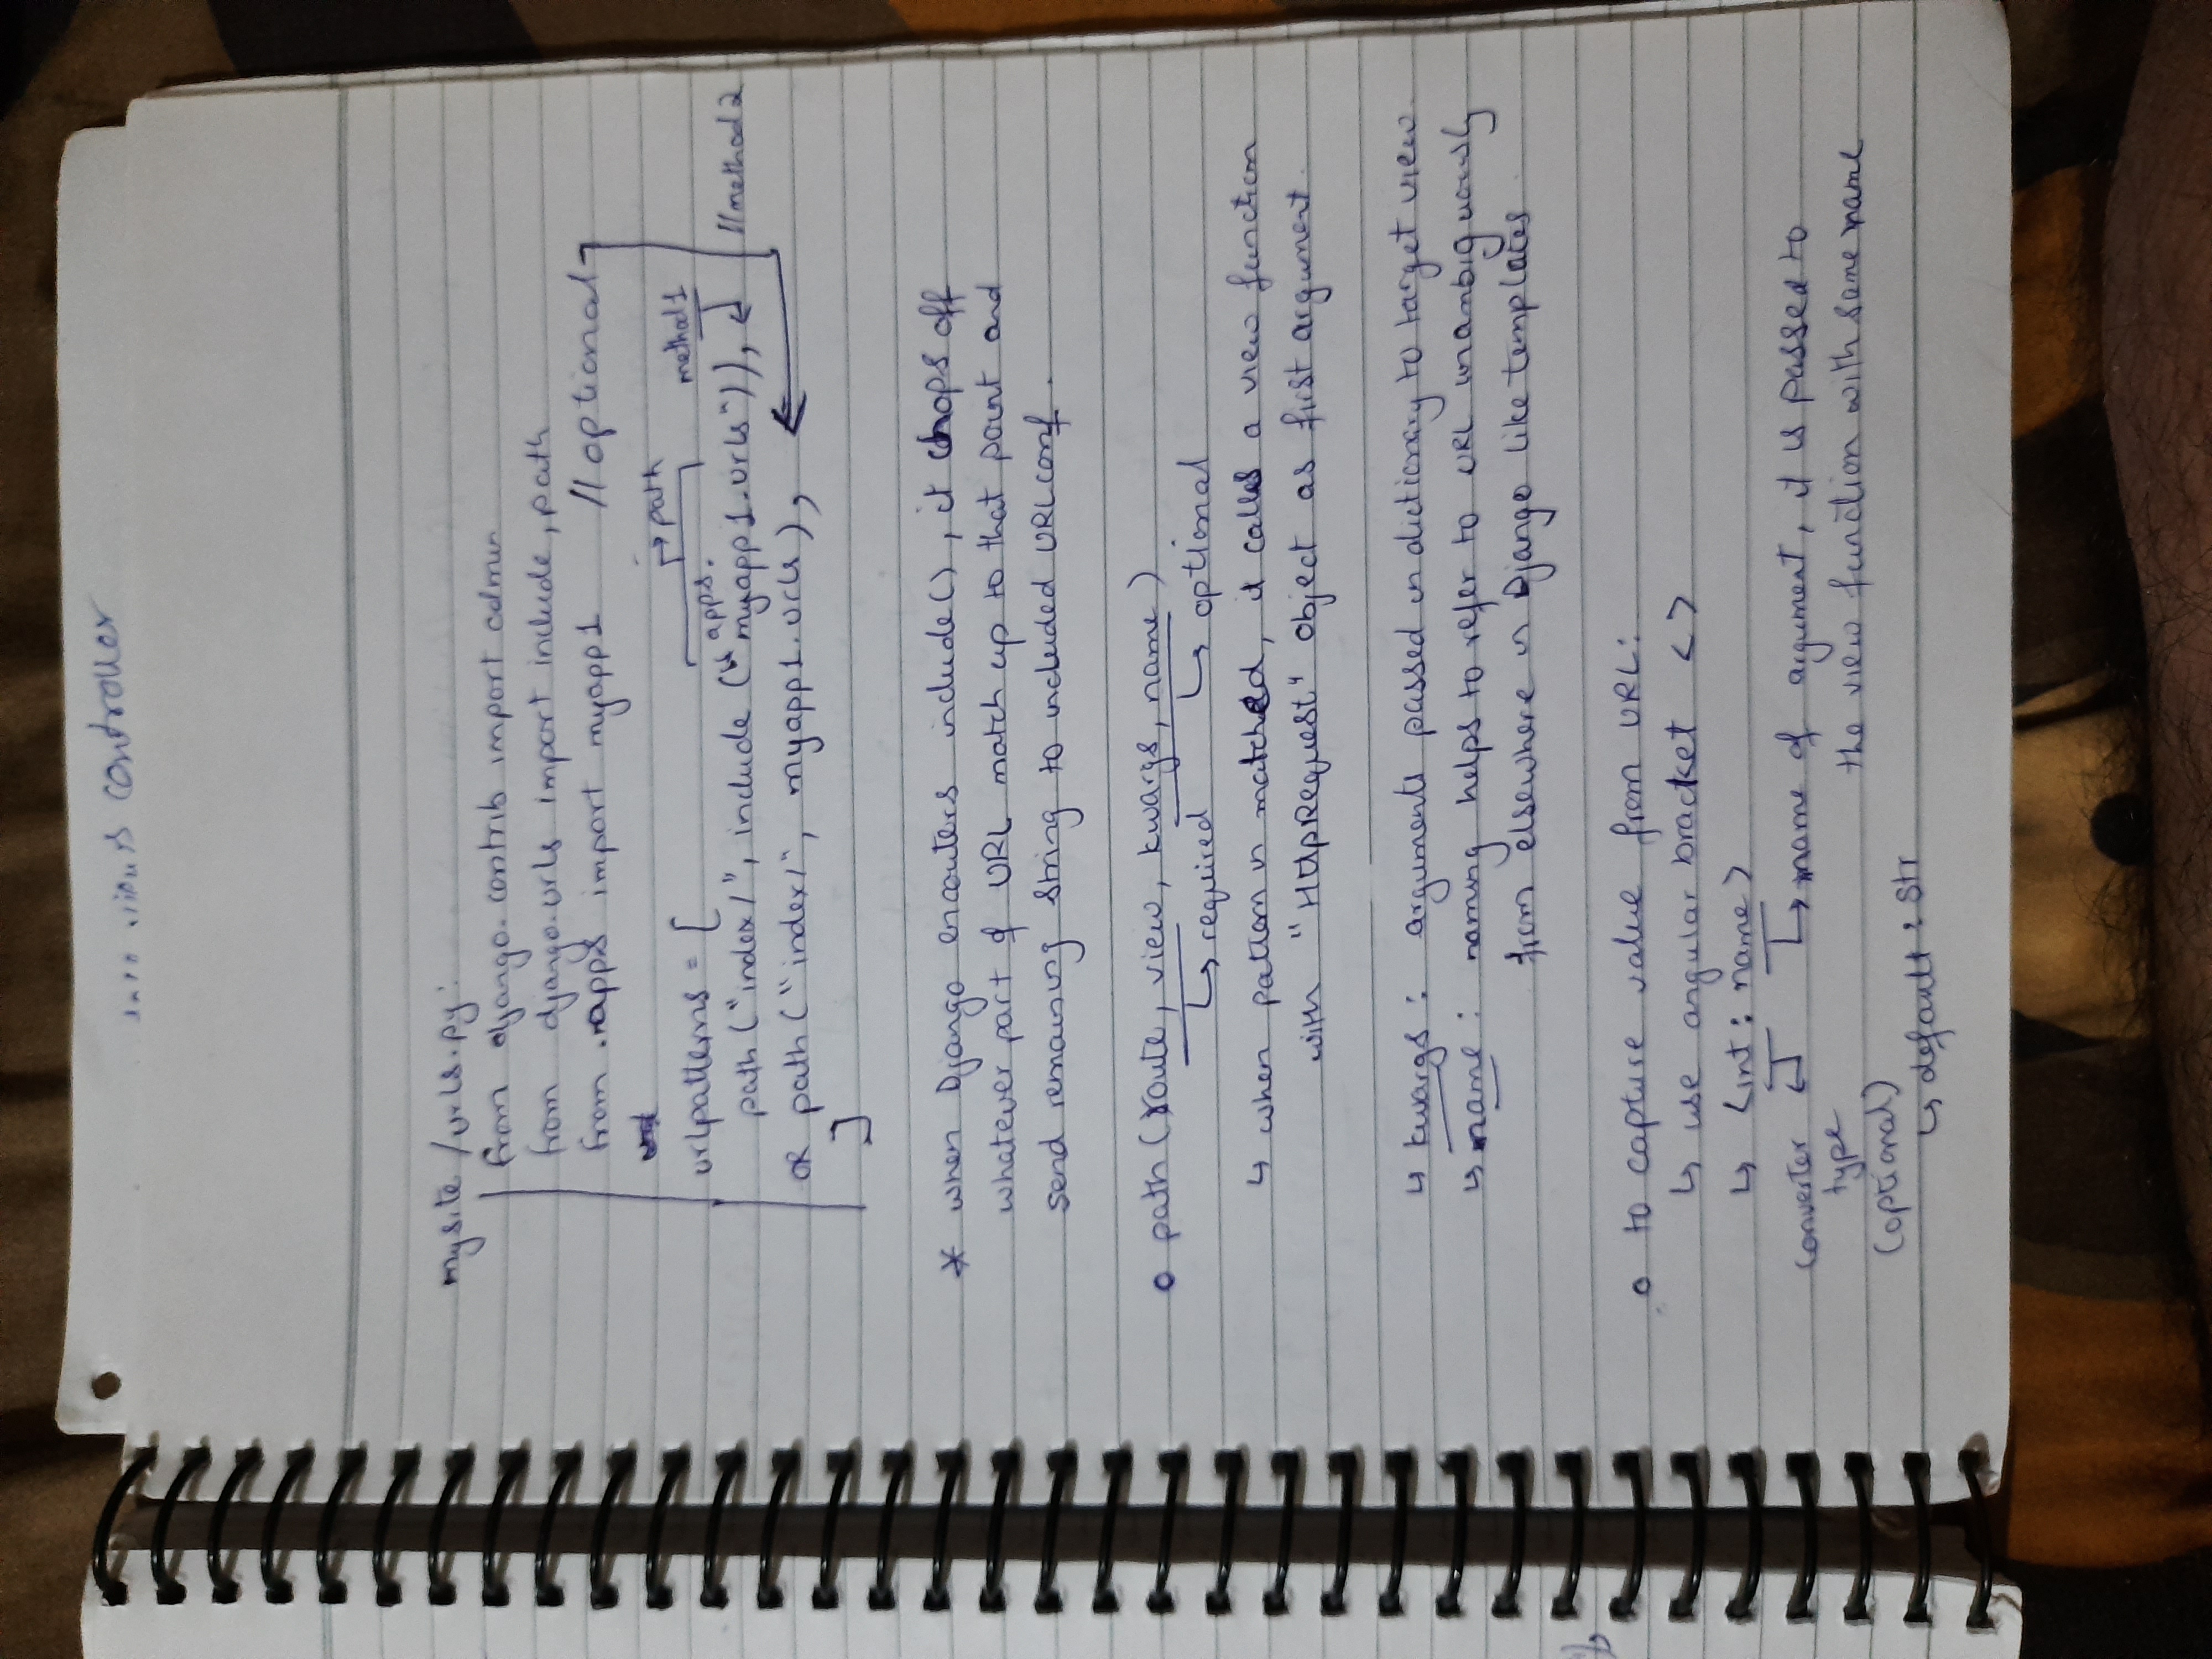 controller
mysite /urls.py:
from django.contrib import admin
from django.urls import include, path
from .apps import myapp1 // optional
path
urlpatterns = [
apps.
method 1
path ("index/", include ("myapp1.urls")),
// method 2
OR path ("index/", myapp1.urls),
]
* when Django encouters include(), it chops off
whatever part of URL match up to that point and
send remaining string to included URLconf.
o path (route, view, kwargs, name)
↳ required
↳ optional
↳ when pattern is matched, it calls a view function
with "HttpRequest" object as first argument.
↳ kwargs : arguments passed in dictionary to target view.
↳ name : naming helps to refer to URL unambiguously
from elsewhere in Django like templates
o to capture value from URL:
↳ use angular bracket < >
↳ <int : name>
converter
type
(optional)
↳ default : str
↳ name of argument, it is passed to
the view function with same name